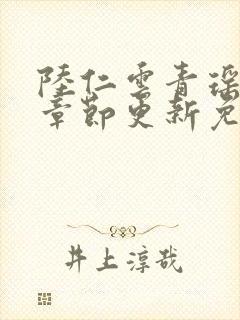 陆仁云青瑶
章节更新免
井上淳哉